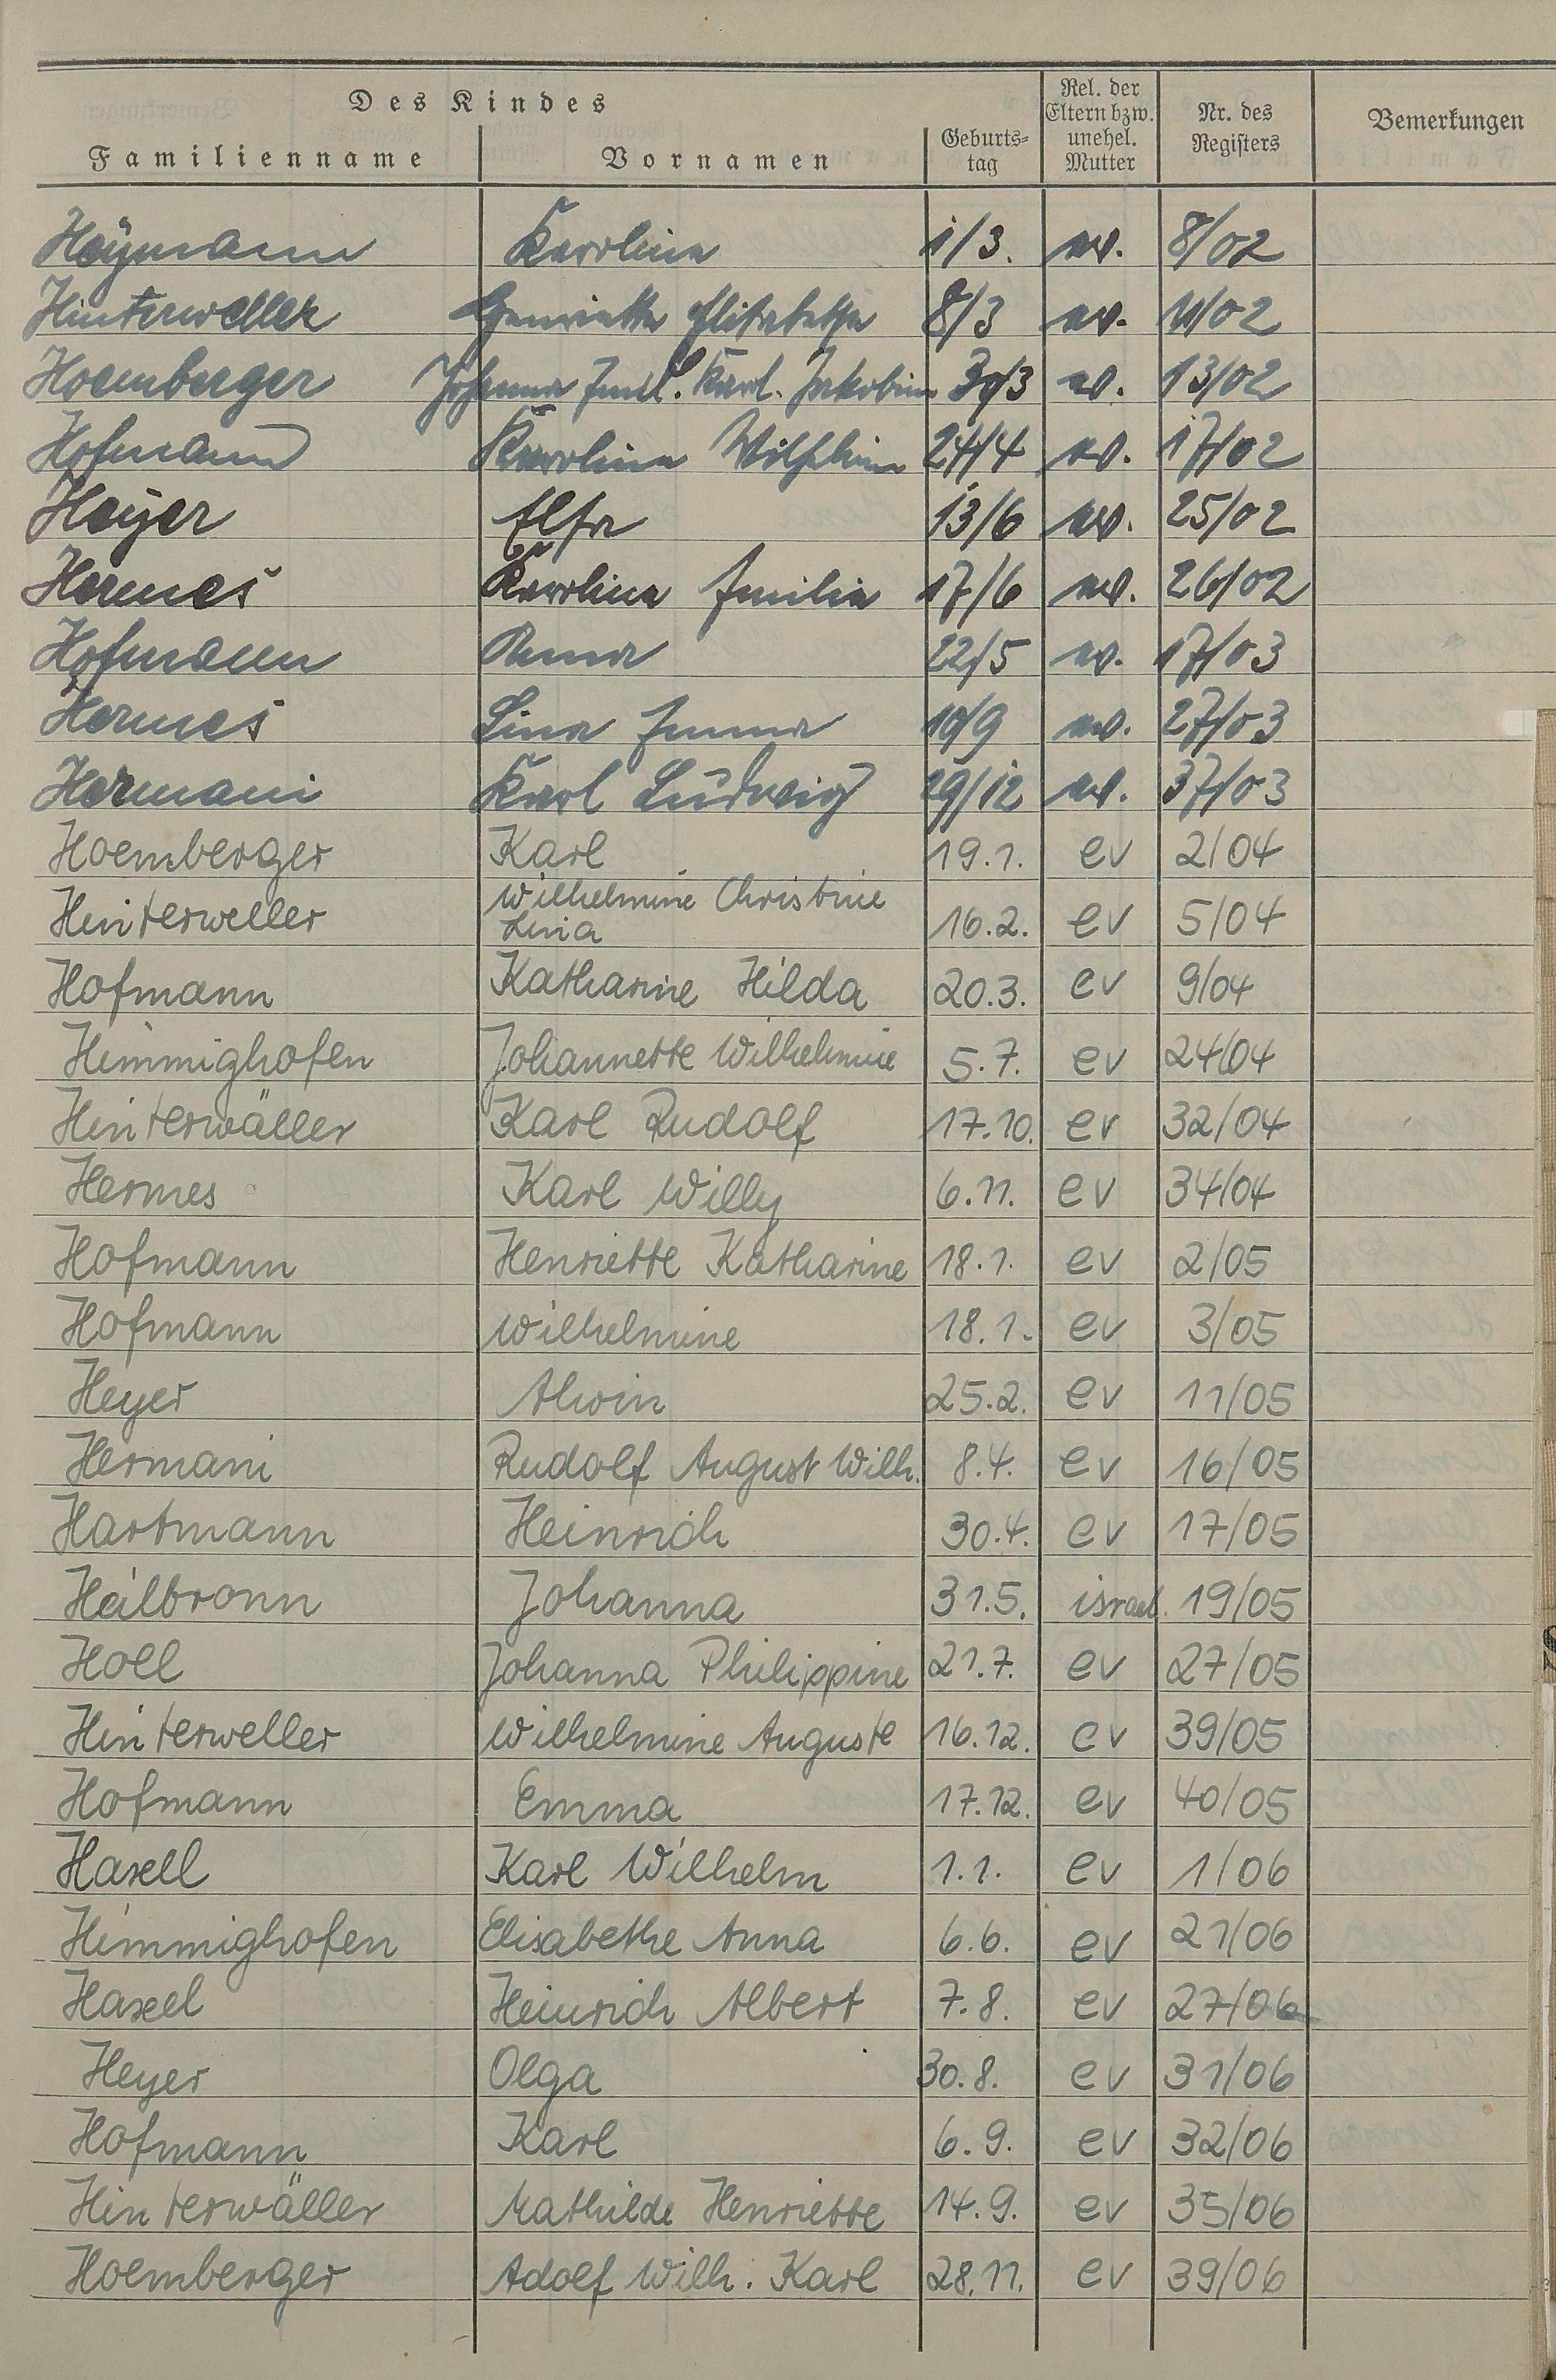 Des Kindes
Familienname Vornamen Geburts-tag Rel. der Eltern bzw. unehel. Mutter Nr. des Registers Bemerkungen
Heymann Karoline 1/3. ev. 8/02
Hinterweller Henriette Elisabethe 8/3 ev. 11/02
Hoemberger Johanna Karl. Jakobine 30/3 ev. 13/02
Hofmann Karoline Wilhelmine 24/4 ev. 17/02
Heyer Elsa 13/6 ev. 25/02
Hermes Karoline Emilie 17/6 ev. 26/02
Hofmann Anna 22/5 ev. 17/03
Hermes Lina Emma 10/9 ev. 27/03
Hermani Karl Ludwig 29/12 ev. 37/03
Hoemberger Karl 19.1. ev 2/04
Hinterweller Wilhelmine Christine Lina 16.2. ev 5/04
Hofmann Katharine Hilda 20.3. ev 9/04
Himmighofen Johannette Wilhelmine 5.7. ev 24/04
Hinterwäller Karl Rudolf 17.10. ev 32/04
Hermes Karl Willy 6.11. ev 34/04
Hofmann Henriette Katharine 18.1. ev 2/05
Hofmann Wilhelmine 18.1. ev 3/05
Heyer Alwin 25.2. ev 11/05
Hermani Rudolf August Wilh. 8.4. ev 16/05
Hartmann Heinrich 30.4. ev 17/05
Heilbronn Johanna 31.5. israel. 19/05
Holl Johanna Philippine 21.7. ev 27/05
Hinterweller Wilhelmine Auguste 16.12. ev 39/05
Hofmann Emma 17.12. ev 40/05
Hasell Karl Wilhelm 1.1. ev 1/06
Himmighofen Elisabethe Anna 6.6. ev 21/06
Hasel Heinrich Albert 7.8. ev 27/06
Heyer Olga 30.8. ev 31/06
Hofmann Karl 6.9. ev 32/06
Hinterwäller Mathilde Henriette 14.9. ev 35/06
Hoemberger Adolf Wilh. Karl 28.11. ev 39/06